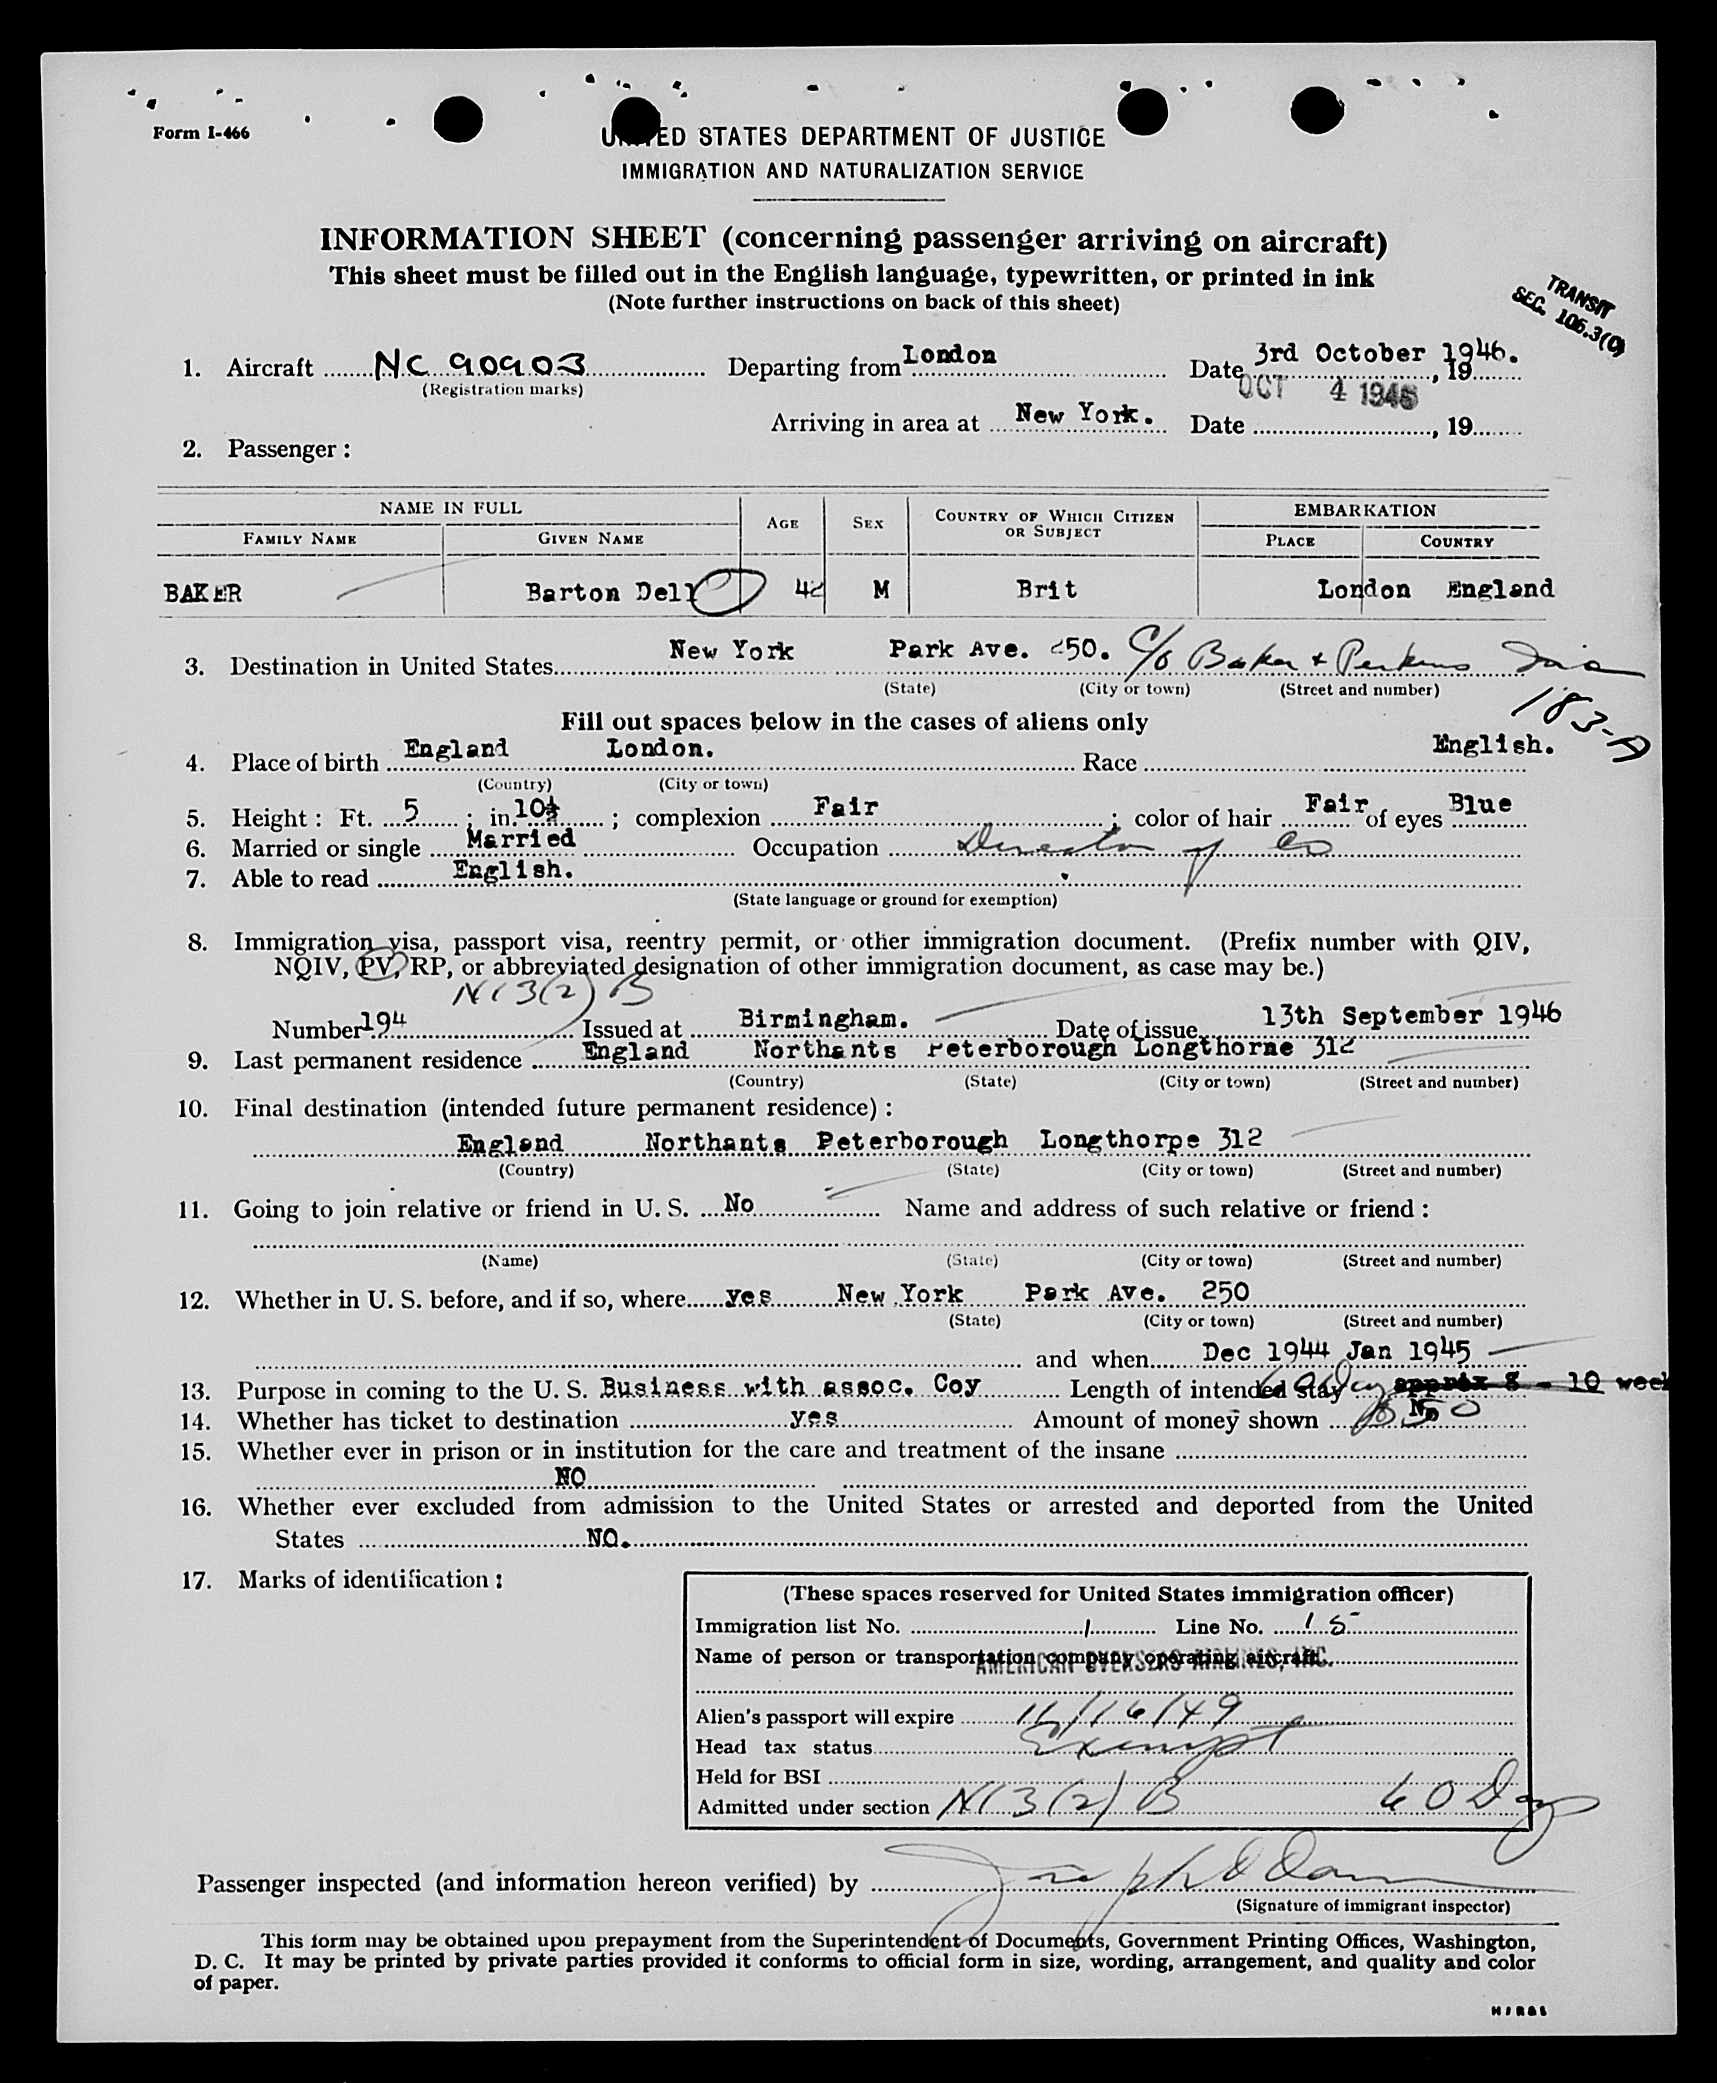 Form I-466
UNITED STATES DEPARTMENT OF JUSTICE
IMMIGRATION AND NATURALIZATION SERVICE
INFORMATION SHEET (concerning passenger arriving on aircraft)
This sheet must be filled out in the English language, typewritten, or printed in ink
(Note further instructions on back of this sheet)
TRANSIT
SEC. 106.3(C)
1. Aircraft NC 90903 Departing from London Date 3rd October 1946. , 19
(Registration marks)
OCT 4 1946
Arriving in area at New York. Date , 19
2. Passenger:
NAME IN FULL AGE SEX COUNTRY OF WHICH CITIZEN OR SUBJECT EMBARKATION
FAMILY NAME GIVEN NAME PLACE COUNTRY
BAKER Barton Dell 42 M Brit London England
3. Destination in United States New York Park Ave. 250. C/o Baker & Perkins Inc
(State) (City or town) (Street and number)
183-A
Fill out spaces below in the cases of aliens only
4. Place of birth England London. Race English.
(Country) (City or town)
5. Height: Ft. 5 ; in. 10½ ; complexion Fair ; color of hair Fair of eyes Blue
6. Married or single Married Occupation Director of Co
7. Able to read English.
(State language or ground for exemption)
8. Immigration visa, passport visa, reentry permit, or other immigration document. (Prefix number with QIV,
NQIV, PV, RP, or abbreviated designation of other immigration document, as case may be.)
NI 3(2) B
Number 194 Issued at Birmingham. Date of issue 13th September 1946
9. Last permanent residence England Northants Peterborough Longthorne 312
(Country) (State) (City or town) (Street and number)
10. Final destination (intended future permanent residence):
England Northants Peterborough Longthorpe 312
(Country) (State) (City or town) (Street and number)
11. Going to join relative or friend in U. S. No Name and address of such relative or friend:
(Name) (State) (City or town) (Street and number)
12. Whether in U. S. before, and if so, where yes New York Park Ave. 250
(State) (City or town) (Street and number)
and when Dec 1944 Jan 1945
13. Purpose in coming to the U. S. Business with assoc. Coy Length of intended stay 60 Days approx 8 - 10 week
14. Whether has ticket to destination yes Amount of money shown No 50
15. Whether ever in prison or in institution for the care and treatment of the insane
NO
16. Whether ever excluded from admission to the United States or arrested and deported from the United
States NO.
17. Marks of identification:
(These spaces reserved for United States immigration officer)
Immigration list No. 1 Line No. 15
Name of person or transportation company operating aircraft
AMERICAN OVERSEAS AIRLINES, INC.
Alien's passport will expire 16/16/49
Head tax status Exempt
Held for BSI
Admitted under section NI 3(2) B 60 Days
Passenger inspected (and information hereon verified) by
(Signature of immigrant inspector)
This form may be obtained upon prepayment from the Superintendent of Documents, Government Printing Offices, Washington,
D. C. It may be printed by private parties provided it conforms to official form in size, wording, arrangement, and quality and color
of paper.